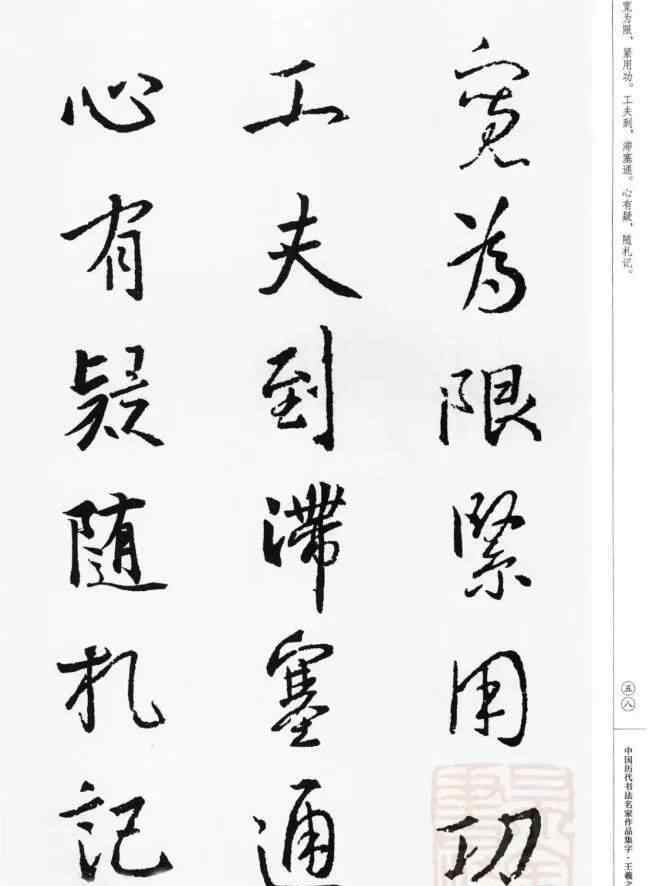 宽为限，紧用功。工夫到，滞塞通。心有疑，随札记。
寬為限緊用功
工夫到滯塞通
心有疑随札記
五八
中国历代书法名家作品集字·王羲之